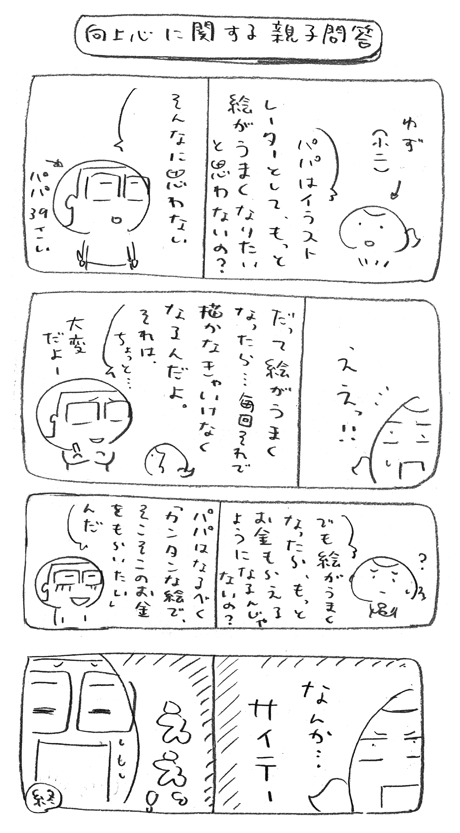 向上心に関する親子問答
ゆず
(小二)
パパはイラスト
レーターとして、もっと
絵がうまくなりたい
と思わないの?
そんなに思わない
パパ39さい
ええっ!!
だって絵がうまく
なったら…毎回それで
描かなきゃいけなく
なるんだよ。
それは、
ちょっと…
大変
だよー
?
でも絵がうまく
なったら、もっと
お金もらえる
ようになるんじゃ
ないの?
パパはなるべく
「カンタンな絵で、
そこそこのお金
をもらいたい」
んだ
なんか…
サイテー
ええ
終